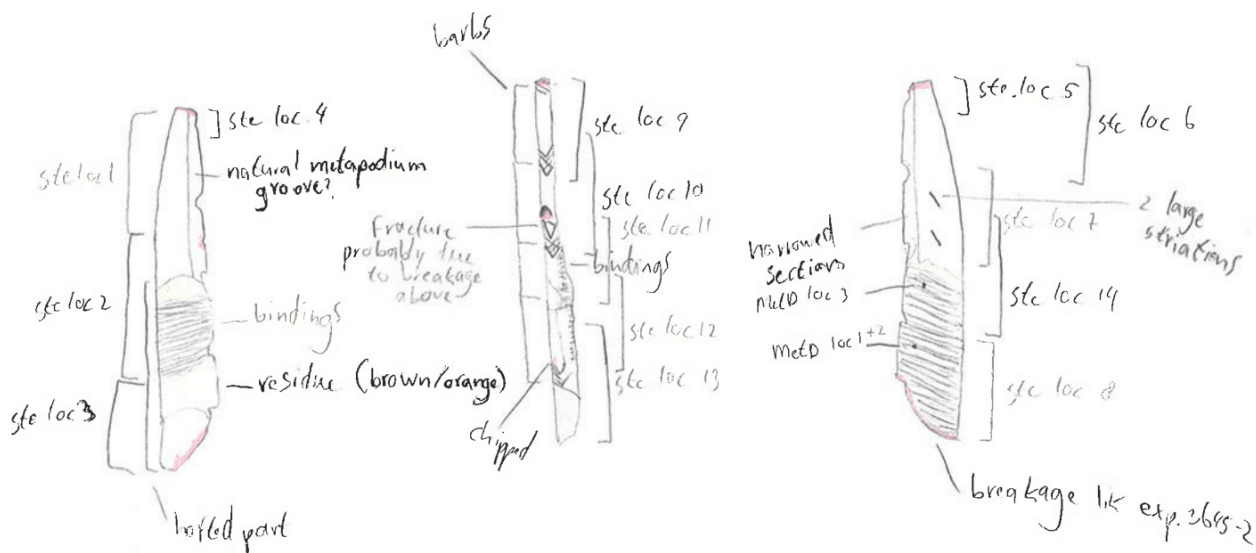 ste loc 4
ste loc 1
natural metapodium
groove?
ste loc 2
bindings
residue (brown/orange)
ste loc 3
hafted part
barbs
ste loc 9
ste loc 10
ste loc 11
Fracture
probably due
to breakage
above
bindings
ste loc 12
ste loc 13
chipped
ste. loc 5
ste loc 6
ste loc 7
2 large
striations
narrowed
sections
MetD loc 3
ste loc 14
MetD loc 1+2
ste loc 8
breakage lik exp. 3645-2